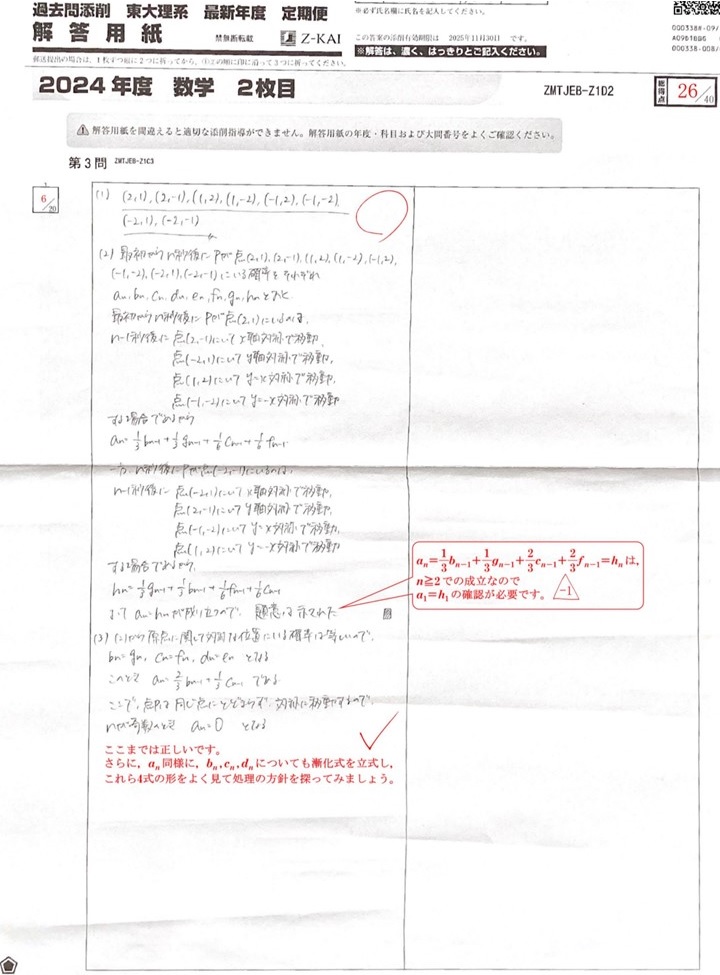 過去問添削 東大理系 最新年度 定期便
解答用紙
禁無断転載
Z-KAI
※必ず氏名欄に氏名を記入してください。
この答案の添削有効期限は 2025年11月30日 です。
※解答は、濃く、はっきりとご記入ください。
000338#-09/
000338-008/
2024年度 数学 2枚目
ZMTJEB-Z1D2
総得点
26/40
解答用紙を間違えると適切な添削指導ができません。解答用紙の年度・科目および大問番号をよくご確認ください。
第3問 ZMTJEB-Z1C3
6/20
(1) (2,1), (2,-1), (1,2), (1,-2), (-1,2), (-1,-2)
(-2,1), (-2,-1)
(2) 最初からn秒後にPが点(2,1), (2,-1), (1,2), (1,-2), (-1,2),
(-1,-2), (-2,1), (-2,-1)にいる確率をそれぞれ
an, bn, cn, dn, en, fn, gn, hnとおく
最初からn秒後にPが点(2,1)にいるのは,
n-1秒後に 点(2,-1)にいて x軸対称で移動,
点(-2,1)にいて y軸対称で移動,
点(1,2)にいて y=x対称で移動,
点(-1,-2)にいて y=-x対称で移動
する場合であるから
an=1/3bn-1+1/3gn-1+1/6cn-1+1/6fn-1
一方, n秒後にPが点(-2,-1)にいるのは,
n-1秒後に 点(-2,1)にいて x軸対称で移動,
点(2,-1)にいて y軸対称で移動,
点(-1,-2)にいて y=x対称で移動,
点(1,2)にいて y=-x対称で移動
する場合であるから,
hn=1/3gn-1+1/3bn-1+1/6fn-1+1/6cn-1
よって an=hnが成り立つので, 題意は示された
an=1/3bn-1+1/3gn-1+2/3cn-1+2/3fn-1=hnは,
n≧2での成立なので
a1=h1の確認が必要です。 -1
(3) (2)から原点に関して対称な位置にいる確率は等しいので,
bn=gn, cn=fn, dn=en となる
このとき an=2/3bn-1+1/3cn-1 である
ここで, 点Pは同じ点にとどまらず, 対称に移動するので,
nが奇数のとき an=0 となる
ここまでは正しいです。
さらに, an同様に, bn, cn, dnについても漸化式を立式し,
これら4式の形をよく見て処理の方針を探ってみましょう。